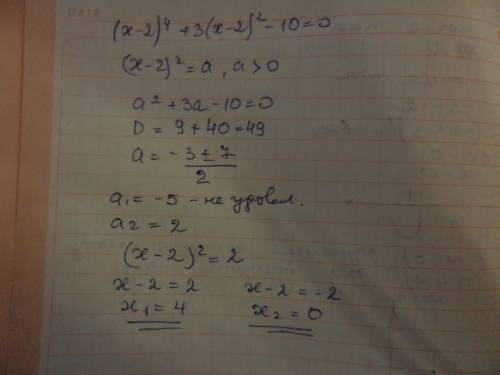 (x-2)⁴ + 3(x-2)² - 10 = 0
(x-2)² = a, a > 0
a² + 3a - 10 = 0
D = 9 + 40 = 49
a = (-3 ± 7)/2
a₁ = -5 - не удовл.
a₂ = 2
(x-2)² = 2
x-2 = 2 x-2 = -2
x₁ = 4 x₂ = 0